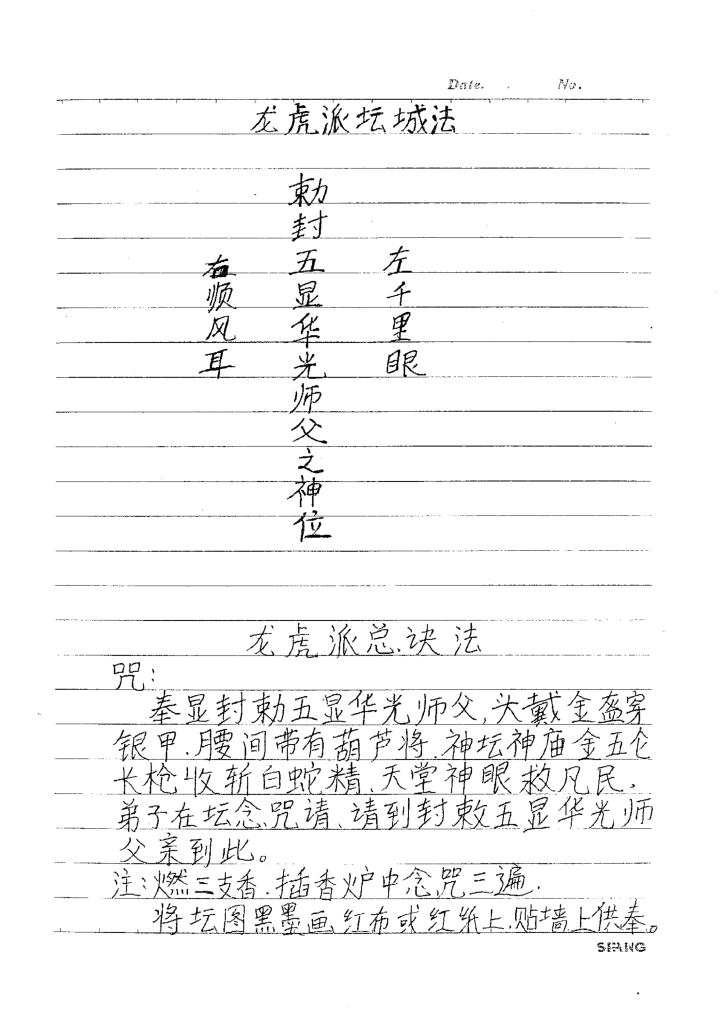 Date. No.
龙虎派坛城法
左千里眼
勅封五显华光师父之神位
右顺风耳
龙虎派总诀法
咒:
奉显封勅五显华光师父,头戴金盔穿
银甲.腰间带有葫芦将.神坛神庙金五仑
长枪收斩白蛇精、天堂神眼救凡民.
弟子在坛念咒请、请到封敕五显华光师
父亲到此。
注:燃三支香.插香炉中念咒三遍.
将坛图黑墨画红布或红纸上.贴墙上供奉。